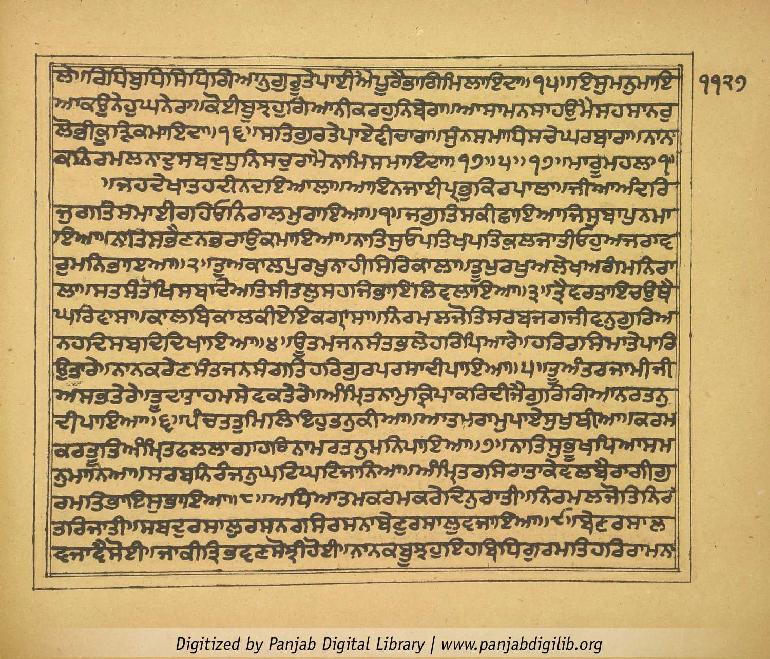 ਲੇ॥ਰਿਧਿਬੁਧਿਸਿਧਿਗਿਆਨੁਗੁਰੂਤੇਪਾਈਐਪੂਰੈਭਾਗਿਮਿਲਾਇਦਾ॥੧੫॥ਇਸੁਮਨੁਮਾਇ
੧੧੨੭
ਆਕਉਨੇਹੁਘਨੇਰਾ॥ਕੋਈਬੂਝਹੁਗਿਆਨੀਕਰਹੁਨਿਬੇਰਾ॥ਆਸਾਮਨਸਾਹਉਮੈਸਹਸਾਨਰੁ
ਲੋਭੀਕੂੜਿਕਮਾਇਦਾ॥੧੬॥ਸਤਿਗੁਰਤੇਪਾਏਵੀਚਾਰਾ॥ਸੁੰਨਸਮਾਧਿਸਚੇਘਰਬਾਰਾ॥ਨਾਨ
ਕਨਿਰਮਲਨਾਦੁਸਬਦਧੁਨਿਸਚੁਰਾਮੈਨਾਮਿਸਮਾਇਦਾ॥੧੭॥੫॥੧੭॥ਮਾਰੂਮਹਲਾ੧
॥ਜਹਦੇਖਾਤਹਦੀਨਦਇਆਲਾ॥ਆਇਨਜਾਈਪ੍ਰਭੁਕਿਰਪਾਲਾ॥ਜੀਆਅੰਦਰਿ
ਜੁਗਤਿਸਮਾਈਰਹਿਓਨਿਰਾਲਮੁਰਾਇਆ॥੧॥ਜਗੁਤਿਸਕੀਛਾਇਆਜਿਸੁਬਾਪੁਨਮਾ
ਇਆ॥ਨਾਤਿਸੁਭੈਣਨਭਰਾਉਕਮਾਇਆ॥ਨਾਤਿਸੁਓਪਤਿਖਪਤਿਕੁਲਜਾਤੀਓਹੁਅਜਰਾਵ
ਰੁਮਨਿਭਾਇਆ॥੨॥ਤੂਅਕਾਲਪੁਰਖੁਨਾਹੀਸਿਰਿਕਾਲਾ॥ਤੂਪੁਰਖੁਅਲੇਖਅਗੰਮਨਿਰਾ
ਲਾ॥ਸਤਸੰਤੋਖਿਸਬਦਿਅਤਿਸੀਤਲੁਸਹਜਿਭਾਇਲਿਵਲਾਇਆ॥੩॥ਤ੍ਰੈਵਰਤਾਇਚਉਥੈ
ਘਰਿਵਾਸਾ॥ਕਾਲਬਿਕਾਲਕੀਏਇਕਗ੍ਰਾਸਾ॥ਨਿਰਮਲਜੋਤਿਸਰਬਜਗਜੀਵਨੁਗੁਰਿਅ
ਨਹਦਿਸਬਦਿਦਿਖਾਇਆ॥੪॥ਊਤਮਜਨਸੰਤਭਲੇਹਰਿਪਿਆਰੇ॥ਹਰਿਰਸਿਮਾਤੇਪਾਰਿ
ਉਤਾਰੇ॥ਨਾਨਕਰੇਣਸੰਤਜਨਸੰਗਤਿਹਰਿਗੁਰਪਰਸਾਦੀਪਾਇਆ॥੫॥ਤੂਅੰਤਰਜਾਮੀਜੀ
ਅਸਭਤੇਰੇ॥ਤੂਦਾਤਾਹਮਸੇਵਕਤੇਰੇ॥ਅੰਮ੍ਰਿਤਨਾਮੁਕ੍ਰਿਪਾਕਰਿਦੀਜੈਗੁਰਿਗਿਆਨਰਤਨੁ
ਦੀਪਾਇਆ॥੬॥ਪੰਚਤਤੁਮਿਲਿਇਹੁਤਨੁਕੀਆ॥ਆਤਮਰਾਮੁਪਾਏਸੁਖੁਥੀਆ॥ਕਰਮ
ਕਰਤੂਤਿਅੰਮ੍ਰਿਤਫਲਲਾਗਾਹਰਿਨਾਮਰਤਨੁਮਨਿਪਾਇਆ॥੭॥ਨਾਤਿਸੁਭੂਖਪਿਆਸਮ
ਨੁਮਾਨਿਆ॥ਸਰਬਨਿਰੰਜਨੁਘਟਿਘਟਿਜਾਨਿਆ॥ਅੰਮ੍ਰਿਤਰਸਿਰਾਤਾਕੇਵਲਬੈਰਾਗੀਗੁ
ਰਮਤਿਭਾਇਸੁਭਾਇਆ॥੮॥ਅਧਿਆਤਮਕਰਮਕਰੇਦਿਨੁਰਾਤੀ॥ਨਿਰਮਲਜੋਤਿਨਿਰੰ
ਤਰਿਜਾਤੀ॥ਸਬਦੁਰਸਾਲੁਰਸਨਰਸਿਰਸਨਾਬੇਣੁਰਸਾਲੁਵਜਾਇਆ॥੯॥ਬੇਣੁਰਸਾਲ
ਵਜਾਵੈਸੋਈ॥ਜਾਕੀਤ੍ਰਿਭਵਣਸੋਝੀਹੋਈ॥ਨਾਨਕਬੂਝਹੁਇਹਬਿਧਿਗੁਰਮਤਿਹਰਿਰਾਮਨ
Digitized by Panjab Digital Library | www.panjabdigilib.org